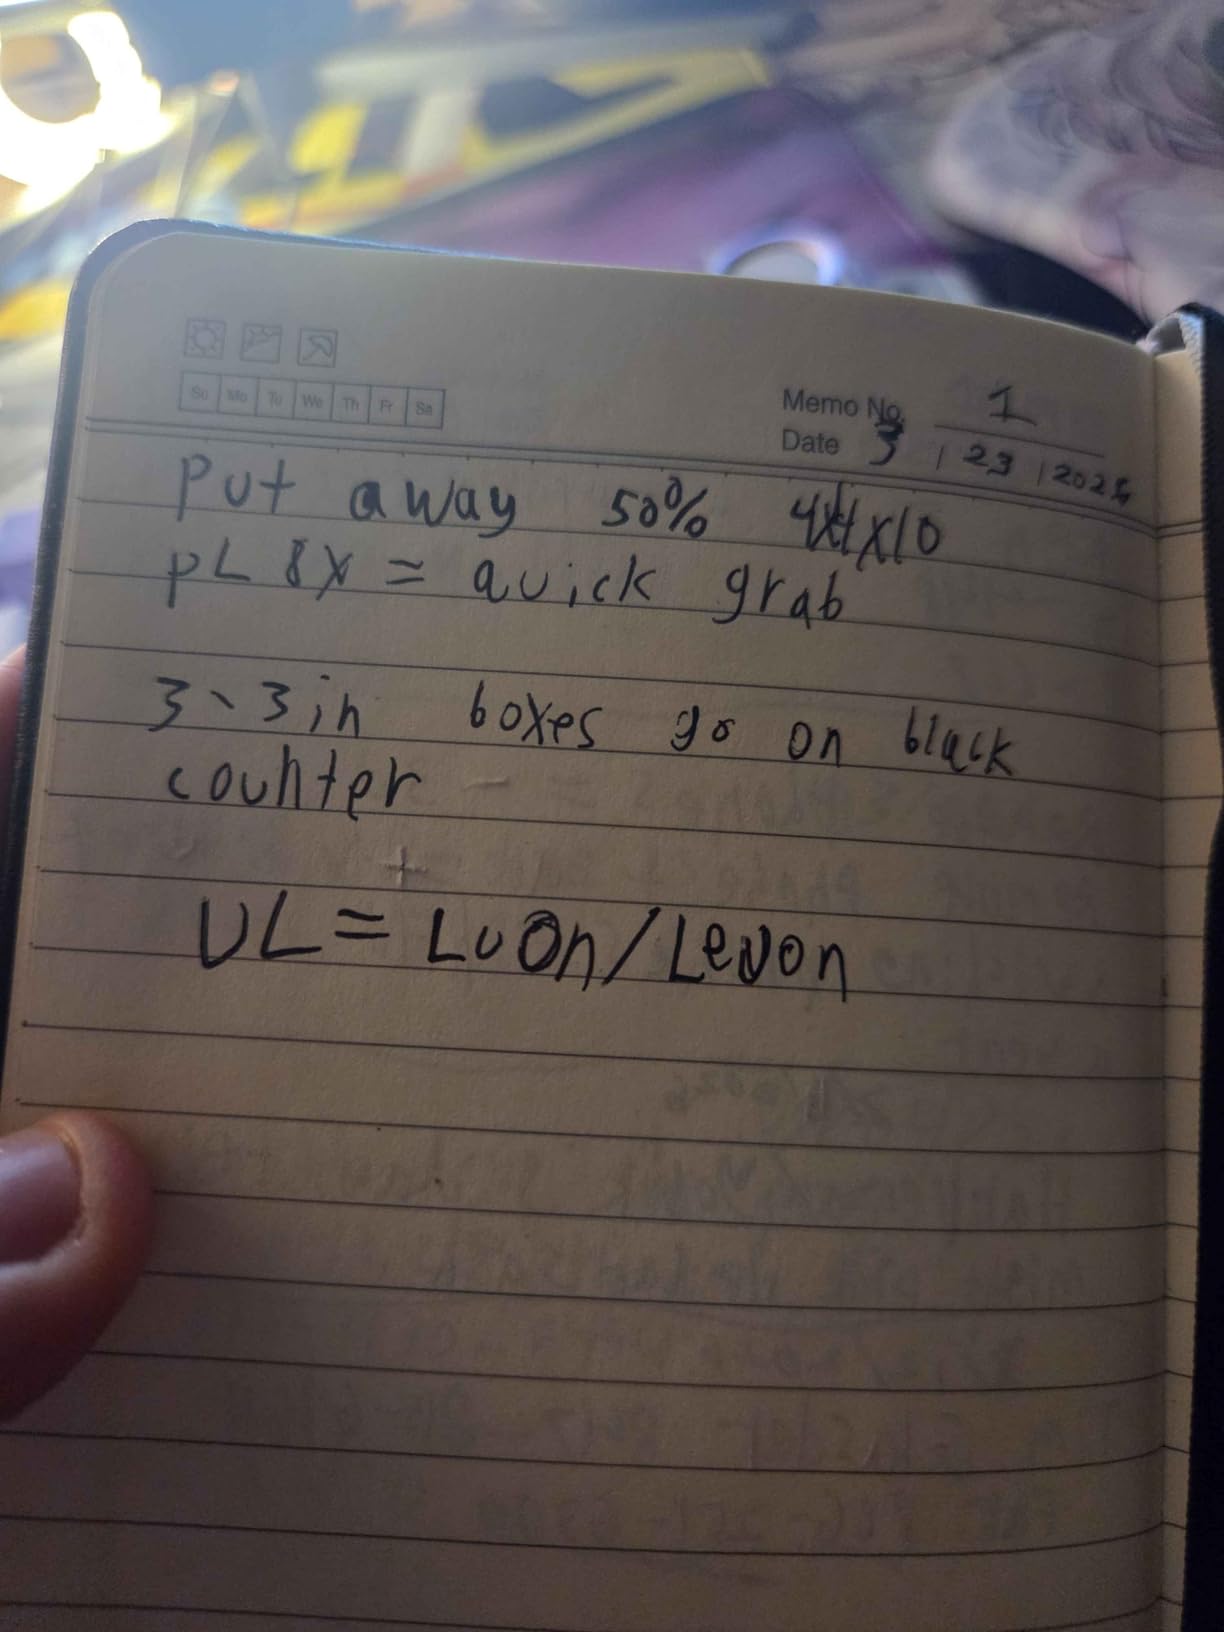 Su Mo Tu We Th Fr Sa
Memo No. 1
Date 3 / 23 / 2025
Put away 50% 4x4x10
PL 8X = quick grab
3、3in boxes go on black
counter
UL = LuOn/Levon